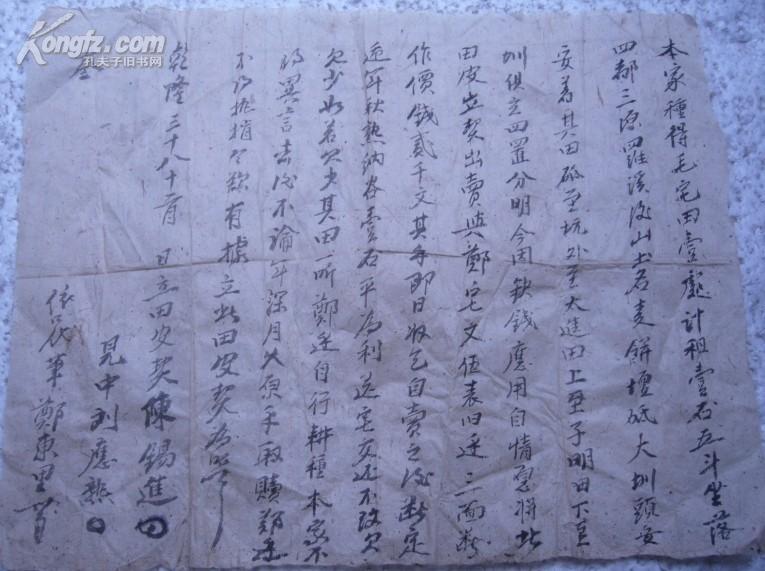 Kongfz.com
孔夫子旧书网
本家種得毛宅田壹 計租壹石五斗坐落
四都三源羅溪後山土名麦餅壇砥大圳頭安
安着其田砥至坑外至大進田上至子明田下至
圳俱立四置分明今因缺錢應用自情愿將此
田皮立契出賣與鄭宅文伍表旧 三面断
作價錢貳千文其錢即日收乞自賣之後断定
遞年秋熟納谷壹石平為利送宅交还不敢欠
欠少如若欠少其田一听鄭 自行耕種本家不
得異言去後不論年深月久原手取贖鄭
不得 有據立此田皮契為照
乾隆三十八十一月 日立田皮契陳錫進
見中刘應熟
依口代筆鄭東里